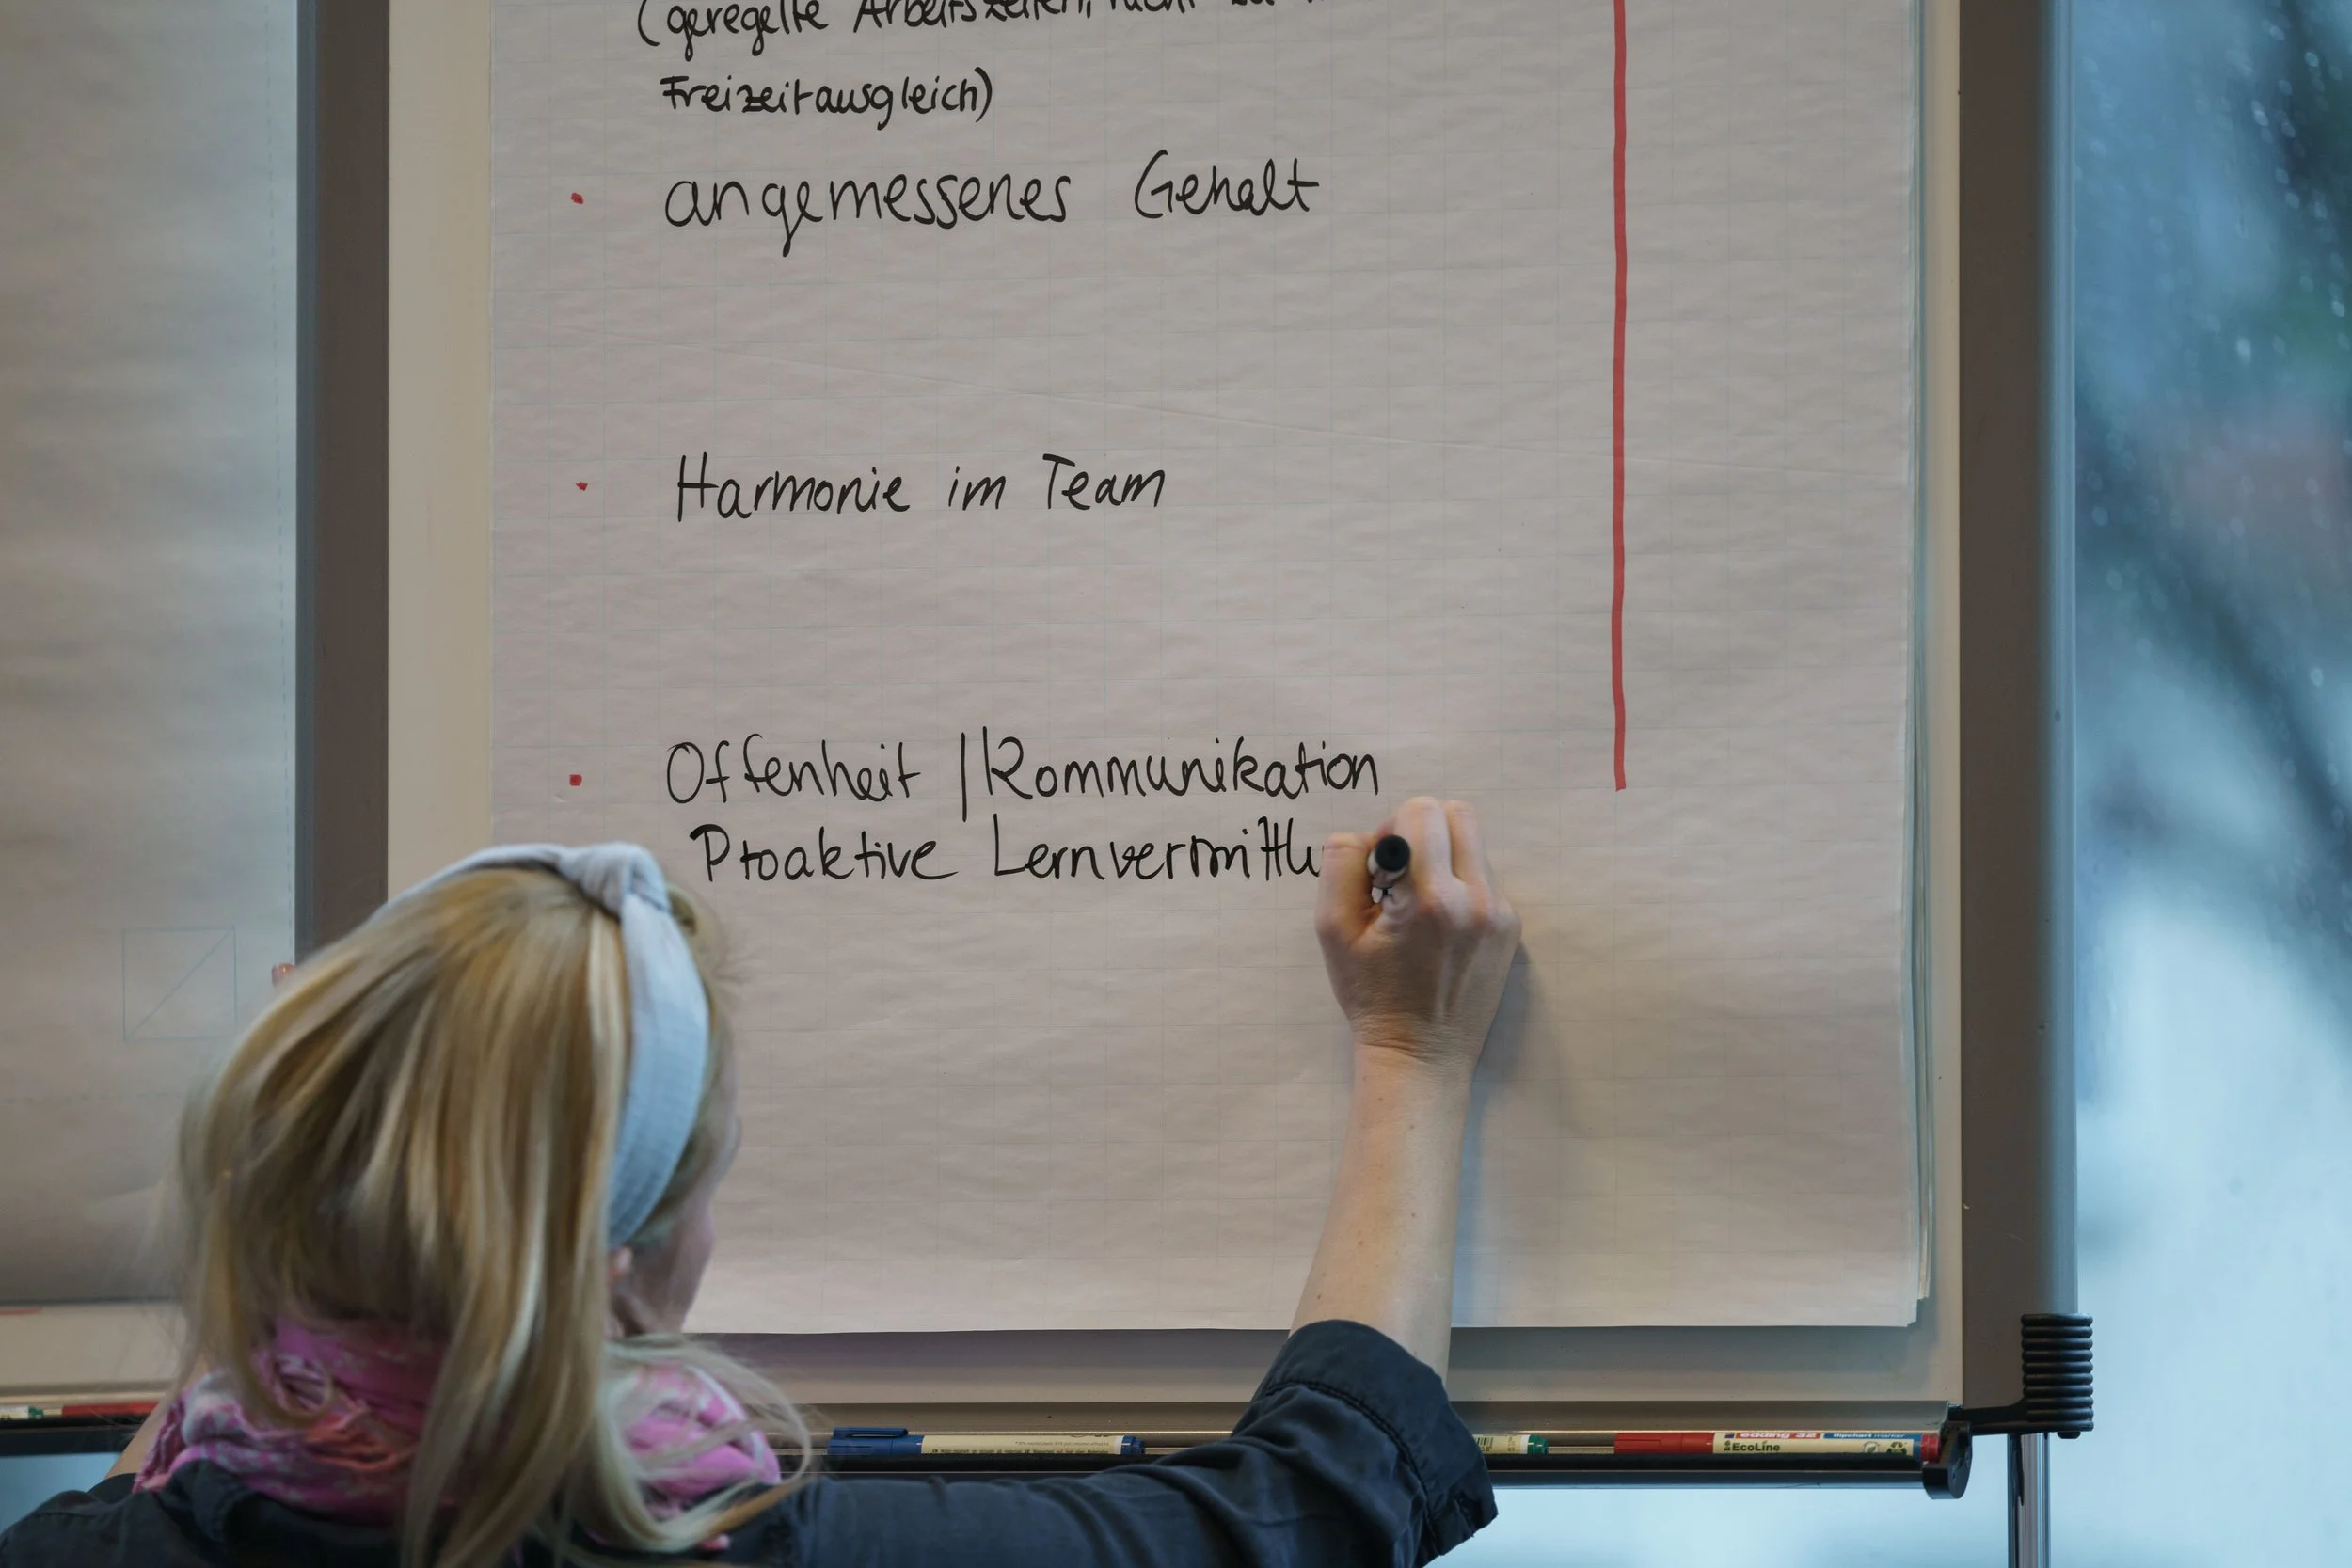 (geregelte Arbeitszeiten, nicht zu
Freizeitausgleich)
• angemessenes Gehalt
• Harmonie im Team
• Offenheit / Kommunikation
Proaktive Lernvermittlu
edding 32 flipchart marker
EcoLine